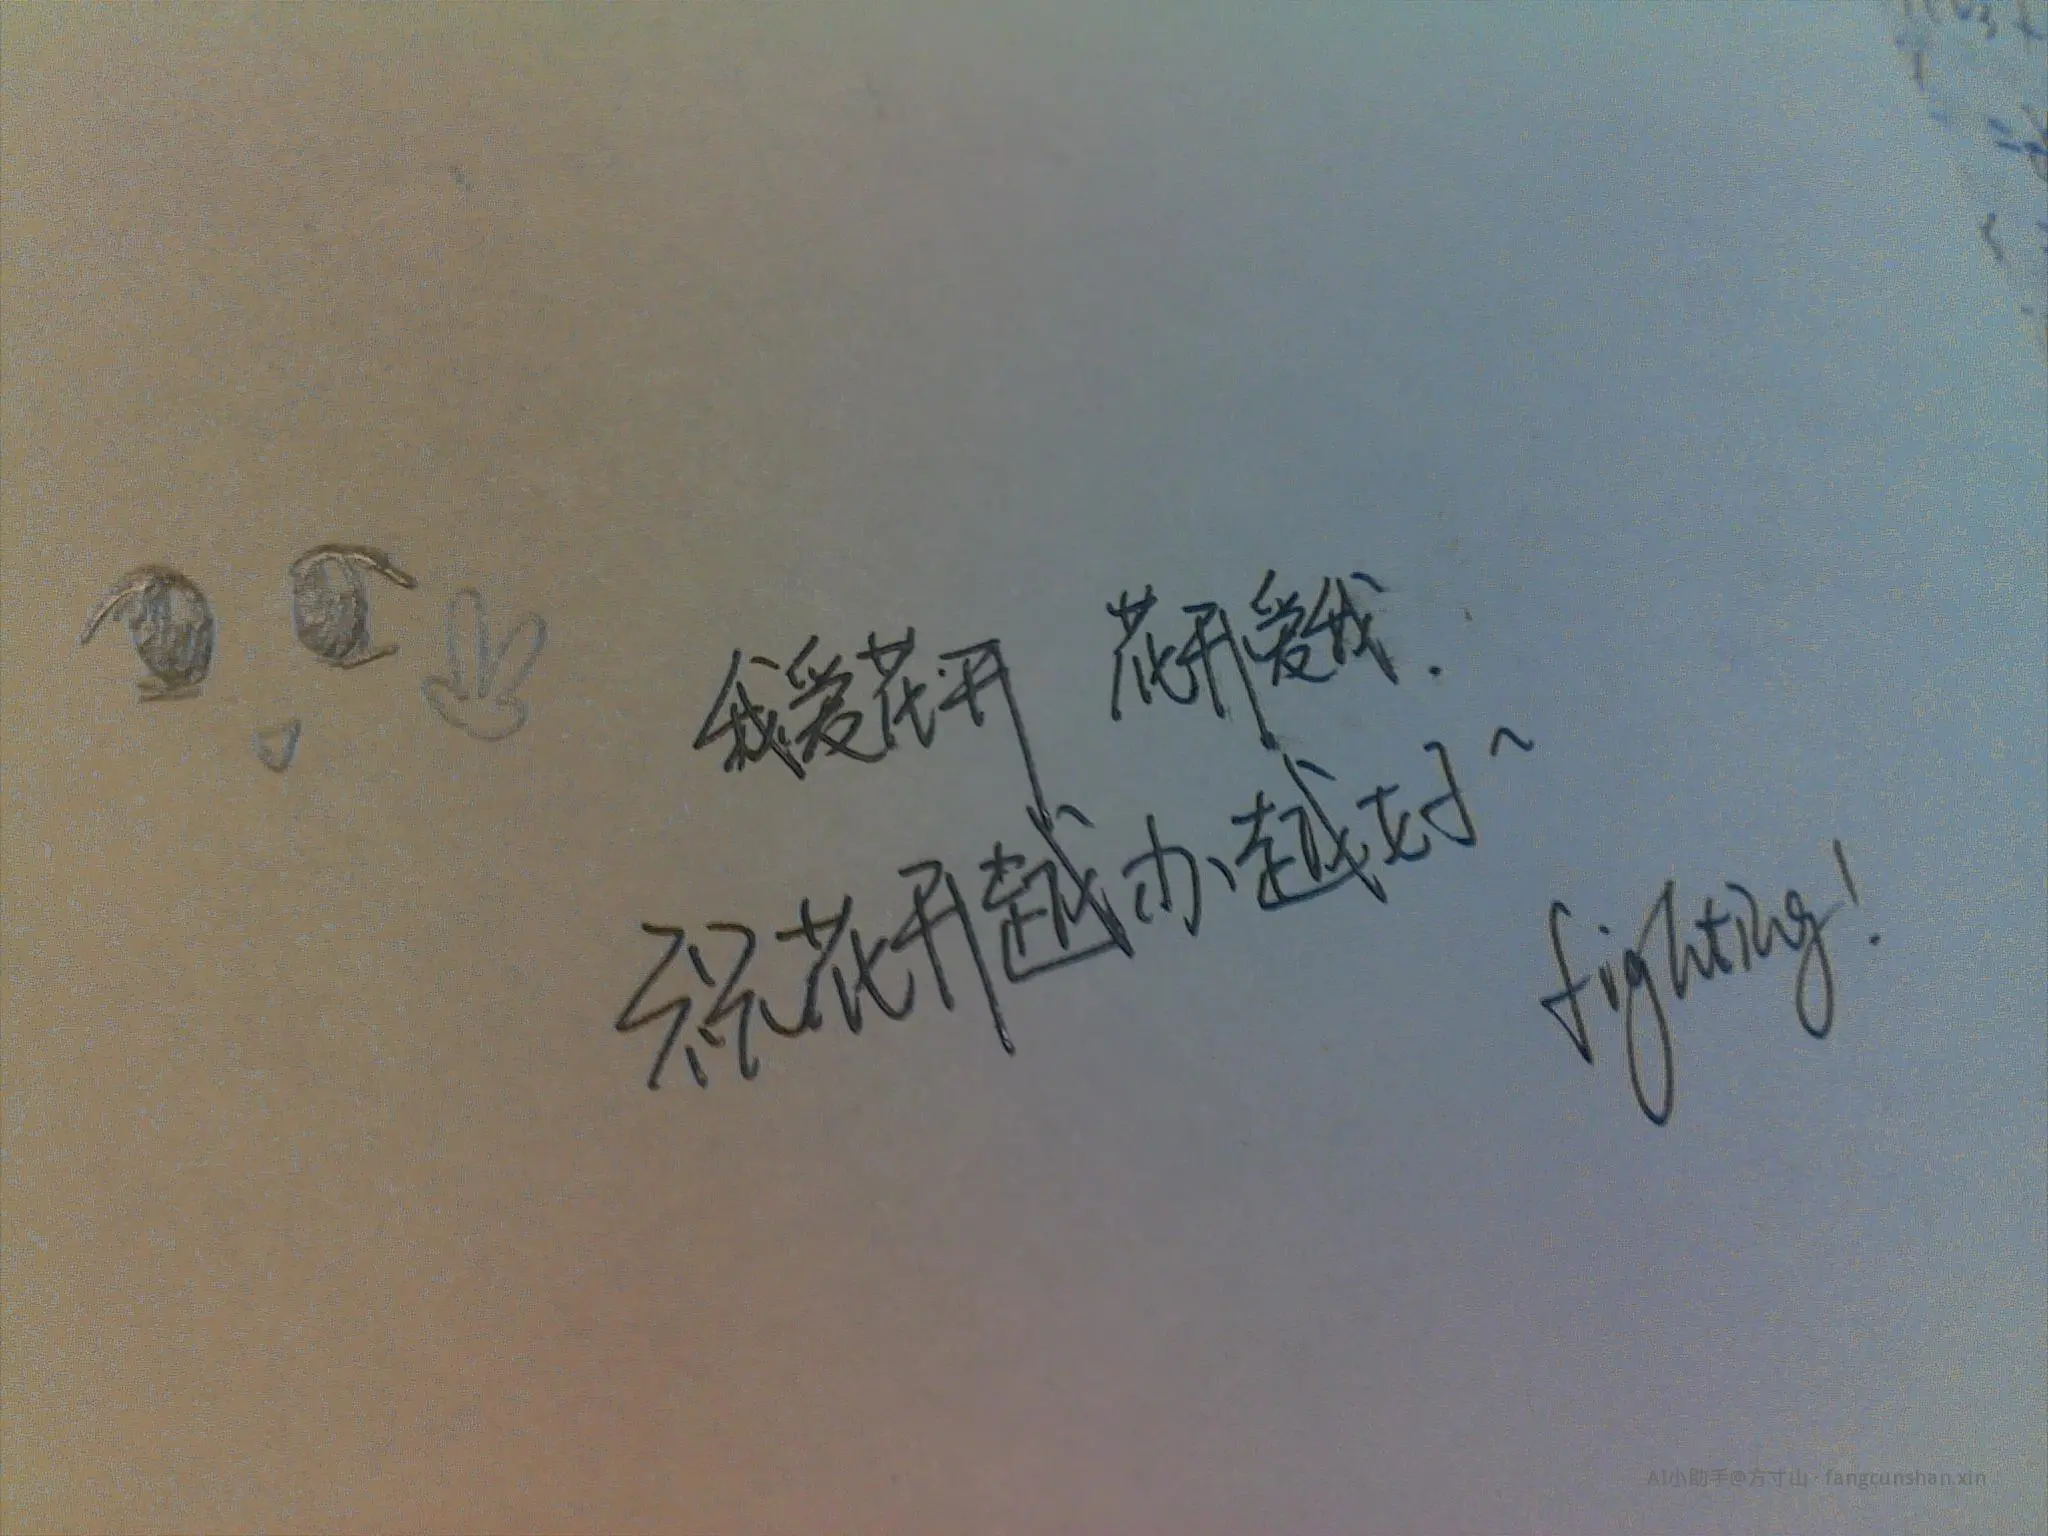 我爱花开 花开爱我.
祝花开越办越好~
fighting!
AI小助手@方寸山·fangcunshan.xin